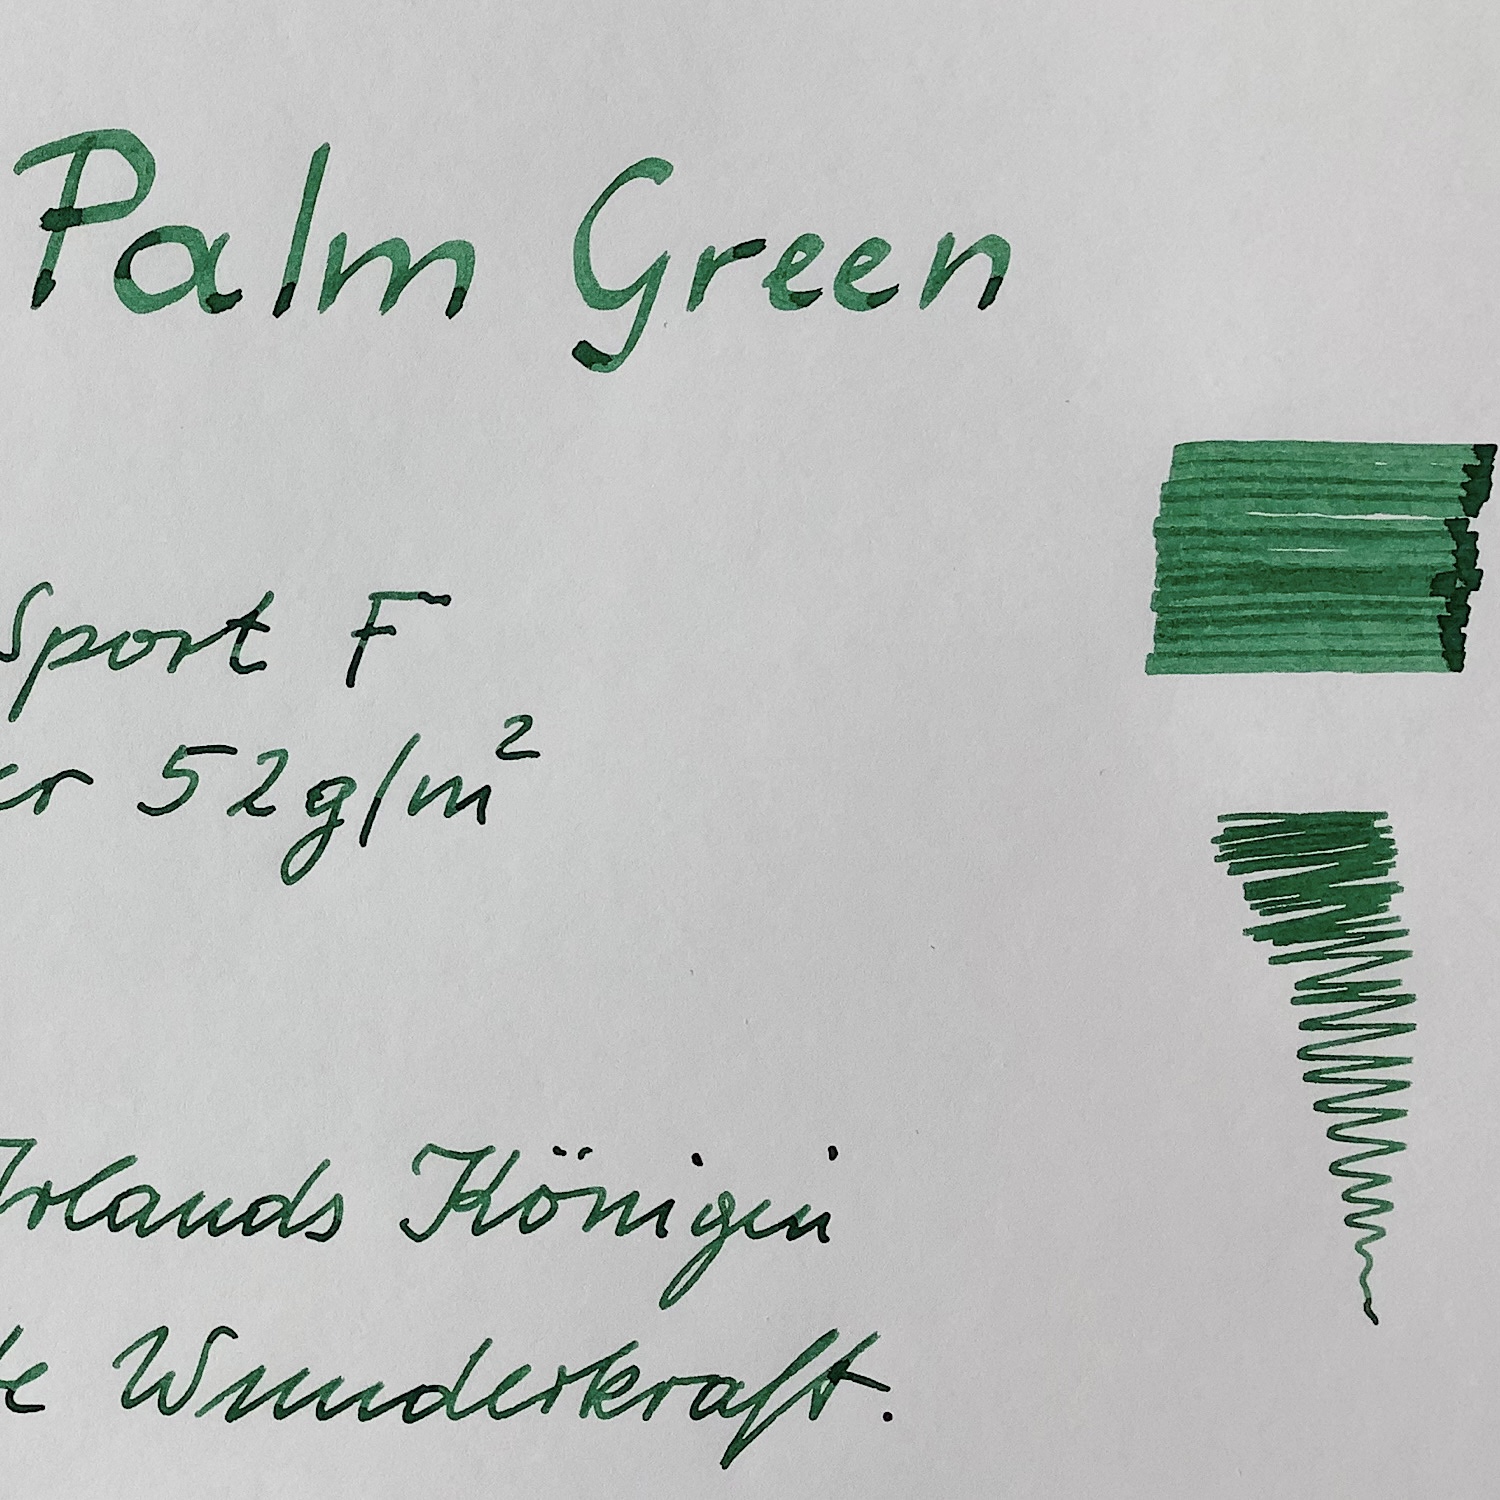 Palm Green
Sport F
er 52g/m²
Irlands Königin
te Wunderkraft.